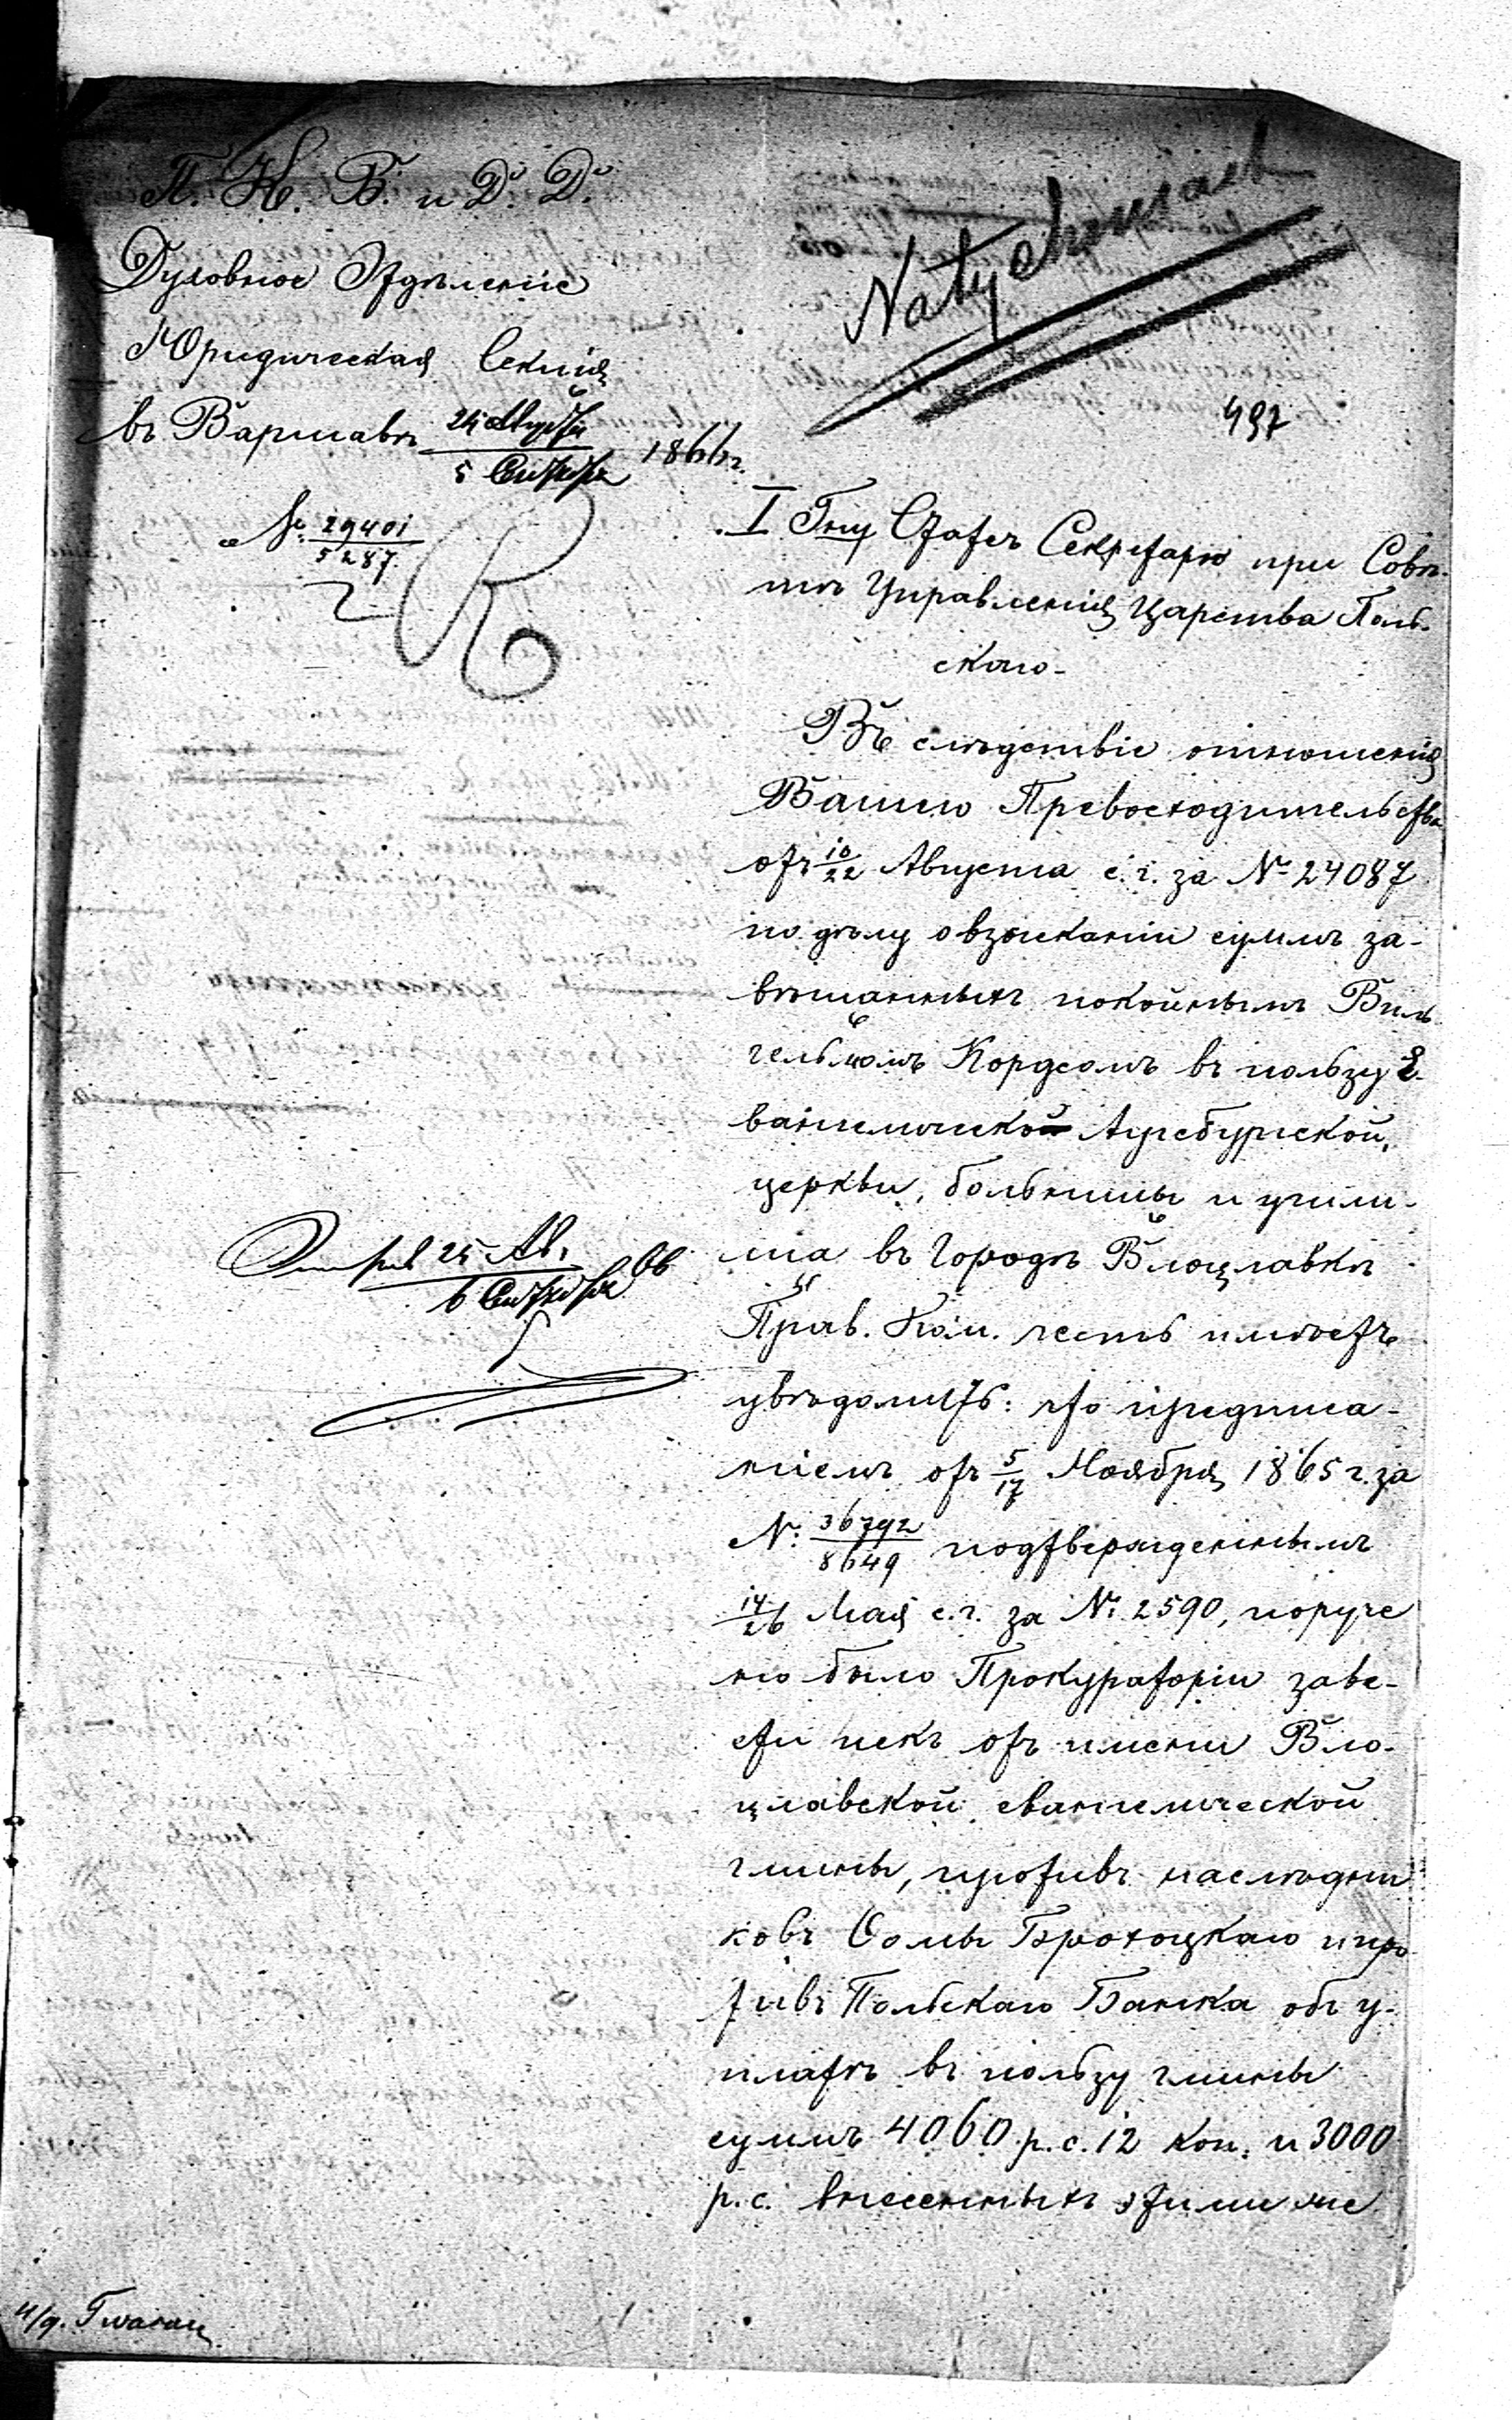 П. К. В. и Д. Д.
Духовное Отдѣленіе
Юридическая Секція
въ Варшавѣ 24 Августа / 5 Сентября 1866 г.
№ 29401 / 5287.
Natychmiast
497
I Гну Статсъ Секретарю при Совѣ-
тѣ Управленія Царства Поль-
скаго-
Въ слѣдствіе отношенія
Вашего Превосходительства
отъ 10/22 Августа с. г. за № 24087
по дѣлу о взысканіи суммъ за-
вѣщанныхъ покойнымъ Виль
гельмомъ Кордсомъ въ пользу Е-
вангелической Аугсбургской,
церкви, больницы и учили-
ща въ Городѣ Влоцлавкѣ
Прав. Ком. честь имѣетъ
увѣдомить: что предписа-
ніемъ отъ 5/17 Ноября 1865 г. за
№ 36792 / 8649 подтвержденнымъ
14/26 Мая с. г. за № 2590, поруче
но было Прокураторіи заве-
сти искъ отъ имени Вло-
цлавской евангелической
гмины, противъ наслѣдни
ковъ Сомы Брохоцкаго и про
тивъ Польскаго Банка объ у-
платѣ въ пользу гмины
суммъ 4060 р. с. 12 коп. и 3000
р. с. внесенныхъ этими же
25 Ав. / 6 Сентября 66
и/д.